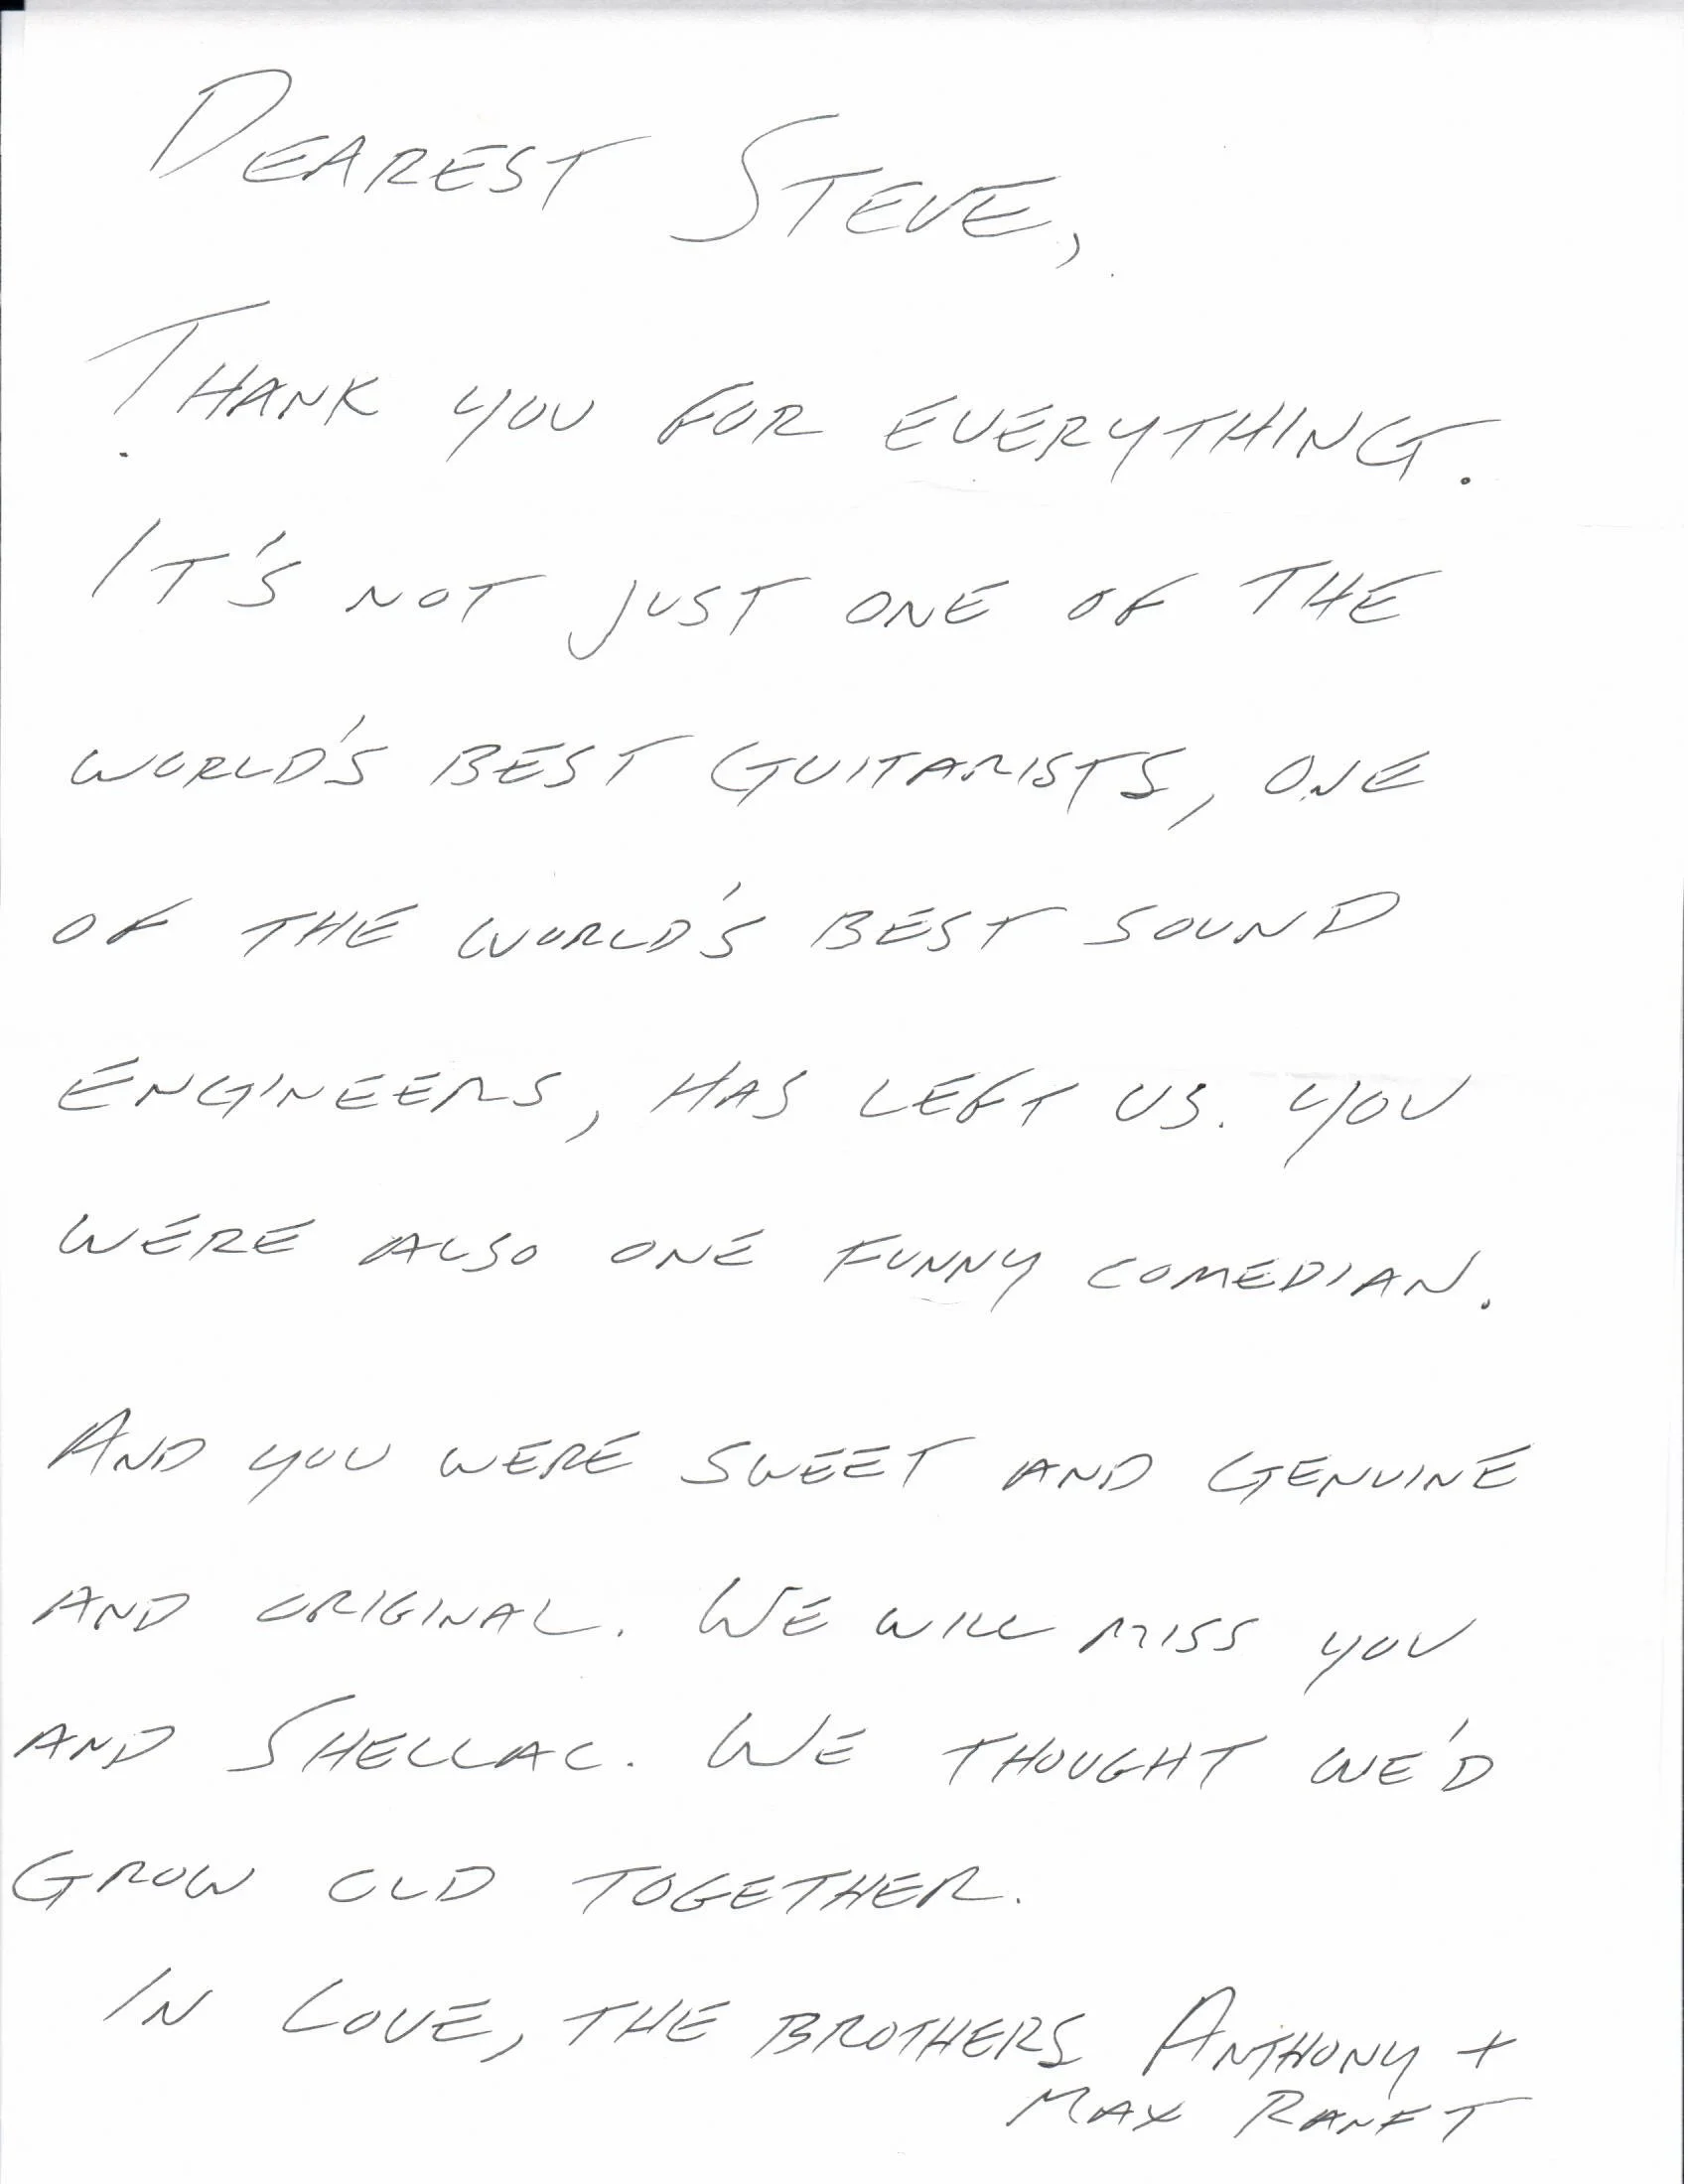 DEAREST STEVE,
THANK YOU FOR EVERYTHING.
IT'S NOT JUST ONE OF THE
WORLD'S BEST GUITARISTS, ONE
OF THE WORLD'S BEST SOUND
ENGINEERS, HAS LEFT US. YOU
WERE ALSO ONE FUNNY COMEDIAN.
AND YOU WERE SWEET AND GENUINE
AND ORIGINAL. WE WILL MISS YOU
AND SHELLAC. WE THOUGHT WE'D
GROW OLD TOGETHER.
IN LOVE, THE BROTHERS ANTHONY +
MAX RANFT